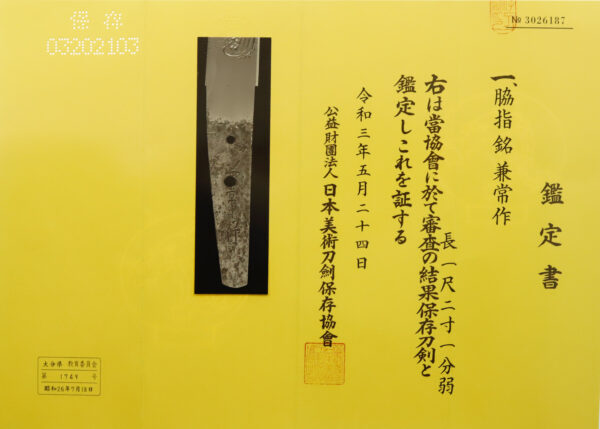 № 3026187
鑑定書
一、脇指 銘 兼常作
長一尺二寸一分弱
右は當協會に於て審査の結果保存刀剣と
鑑定しこれを証する
令和三年五月二十四日
公益財團法人 日本美術刀劍保存協會
保存
03202103
大分県 教育委員会
第 1769 号
昭和26年7月18日